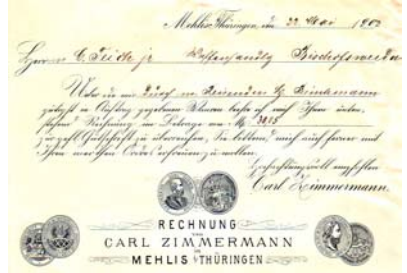 Mehlis i/Thüringen, den 22 Mai 1903
Herrn C. Teich jr Waffenhandlg Bischofswerda
Über die mir durch m. Reisenden H. Brinkmann
gütigst in Auftrag gegebenen Waaren lasse ich nach Ihnen unten-
stehend Rechnung im Betrage von M. 38.15
zur gefl. Gutschrift zu überreichen. Sie bittend, mich auch ferner mit
Ihren werthen Ordres erfreuen zu wollen.
Hochachtungsvoll empfohlen
Carl Zimmermann.
RECHNUNG
VON
CARL ZIMMERMANN
IN
MEHLIS i/THÜRINGEN